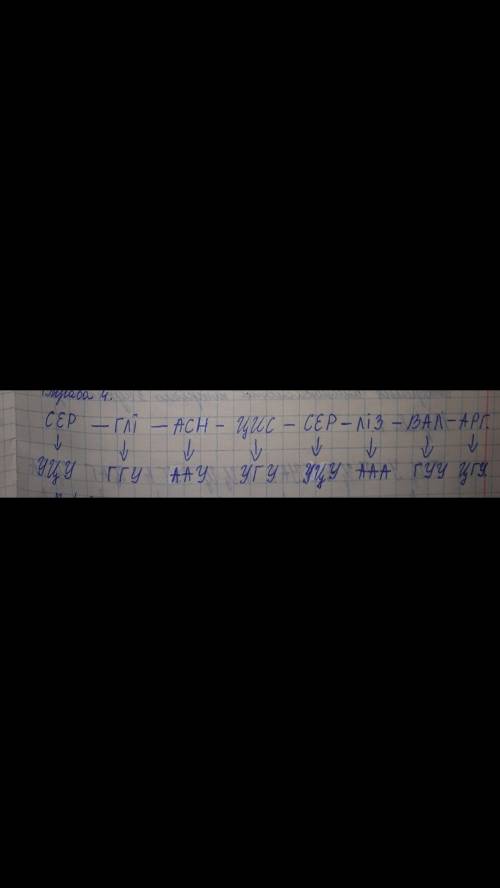 Вправа 4.
СЕР – ГЛІ – АСН – ЦИС – СЕР – ЛІЗ – ВАЛ – АРГ.
УЦУ ГГУ ААУ УГУ УЦУ ААА ГУУ ЦГУ